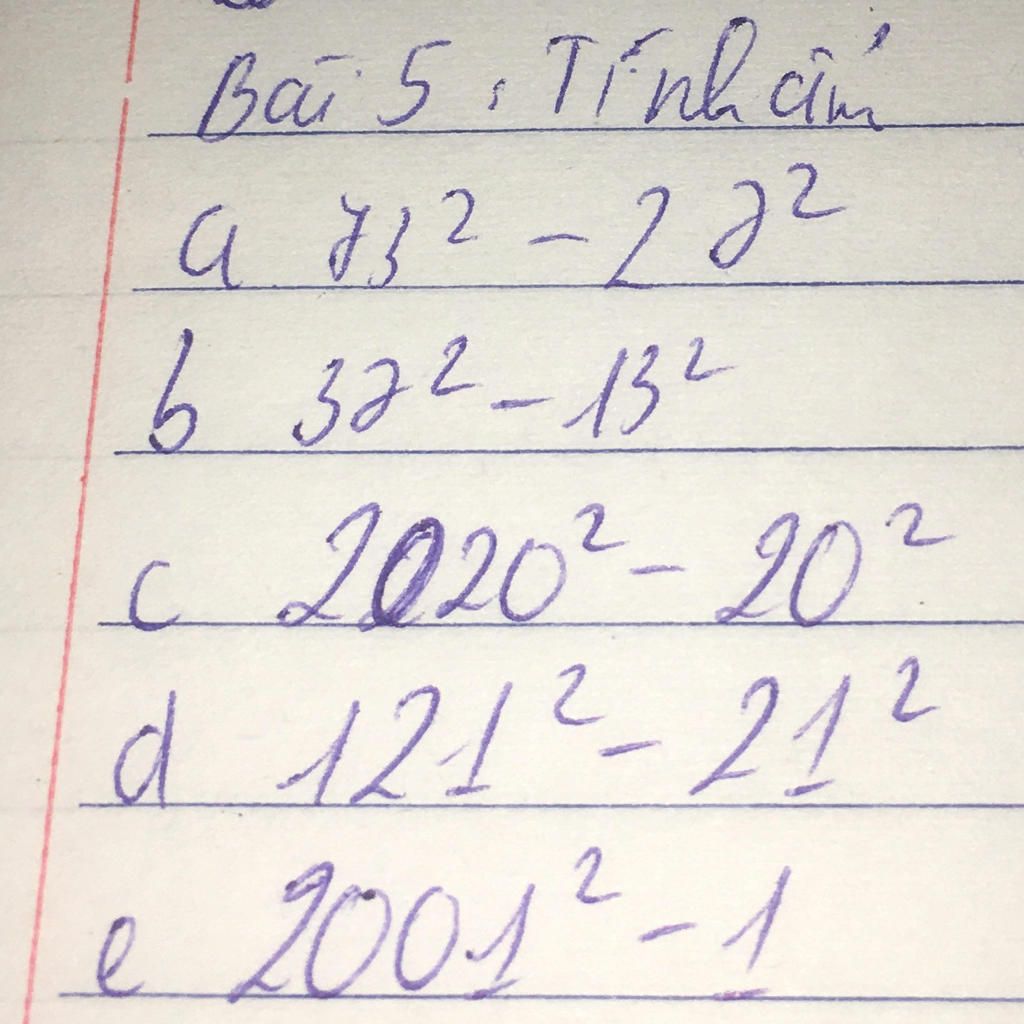 Bài 5. Tính
a 73² - 27²
b 37² - 13²
c 2020² - 20²
d 121² - 21²
e 2001² - 1